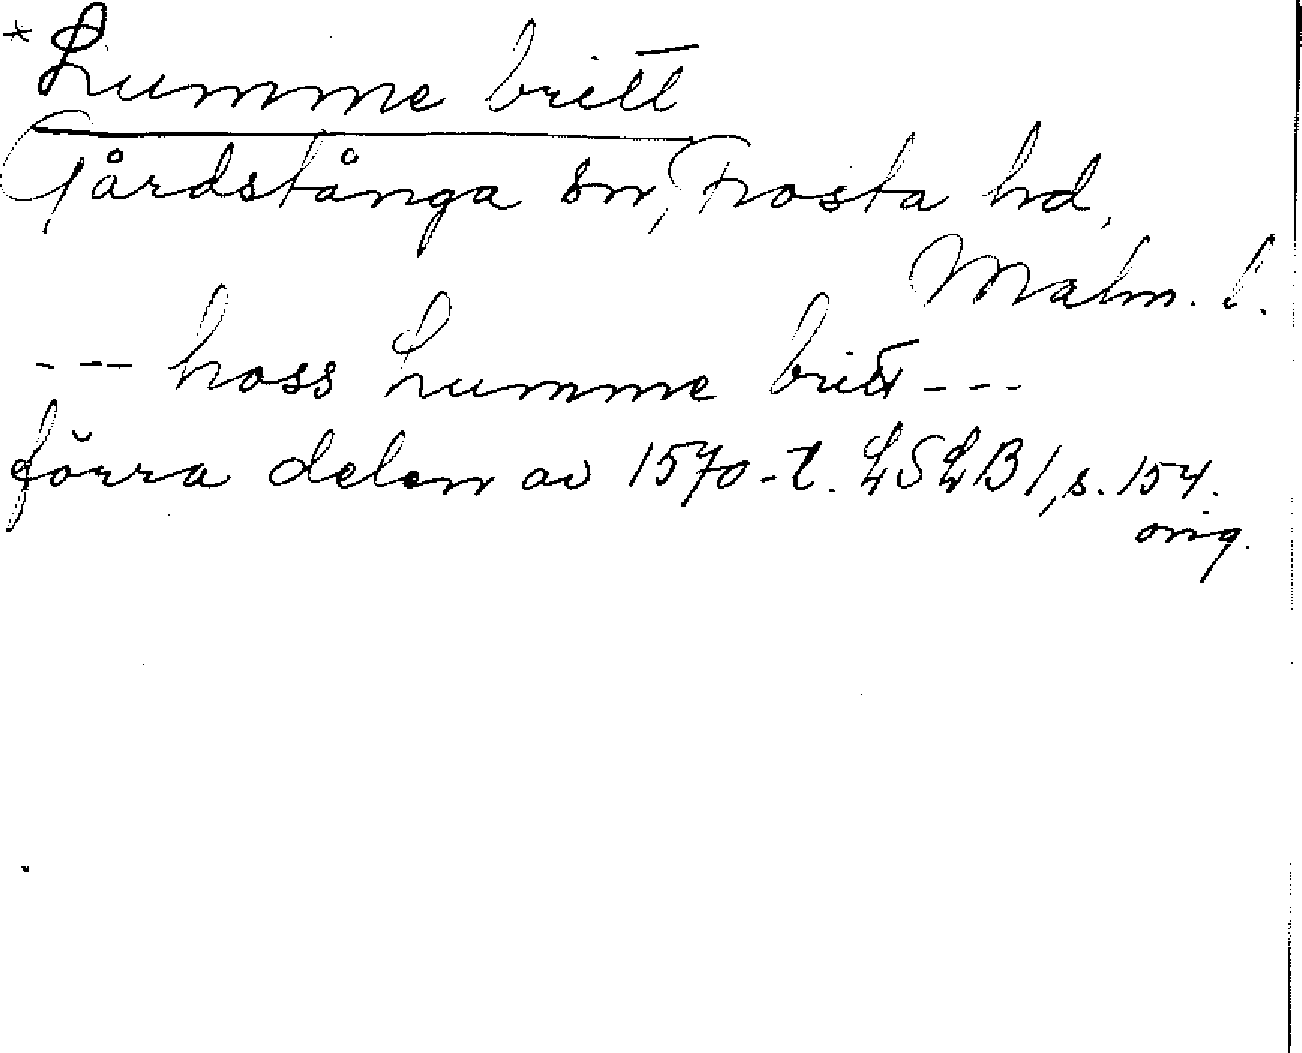 * Lumme britt
Gårdstånga sn, Frosta hd,
Malm. l.
--- hoss Lumme britt ---
förra delen av 1570-t. LSLB1, s. 154.
orig.